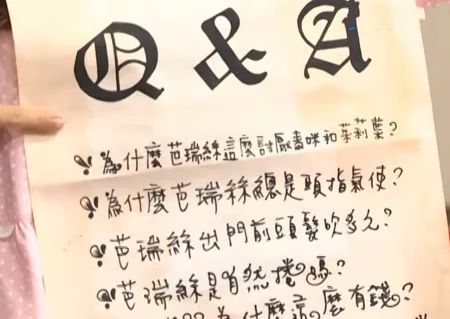 Q & A
為什麼芭瑞絲這麼討厭壽咪和茱莉葉?
為什麼芭瑞絲總是頤指氣使?
芭瑞絲出門前頭髮吹多久?
芭瑞絲是自然捲嗎?
為什麼這麼有錢?